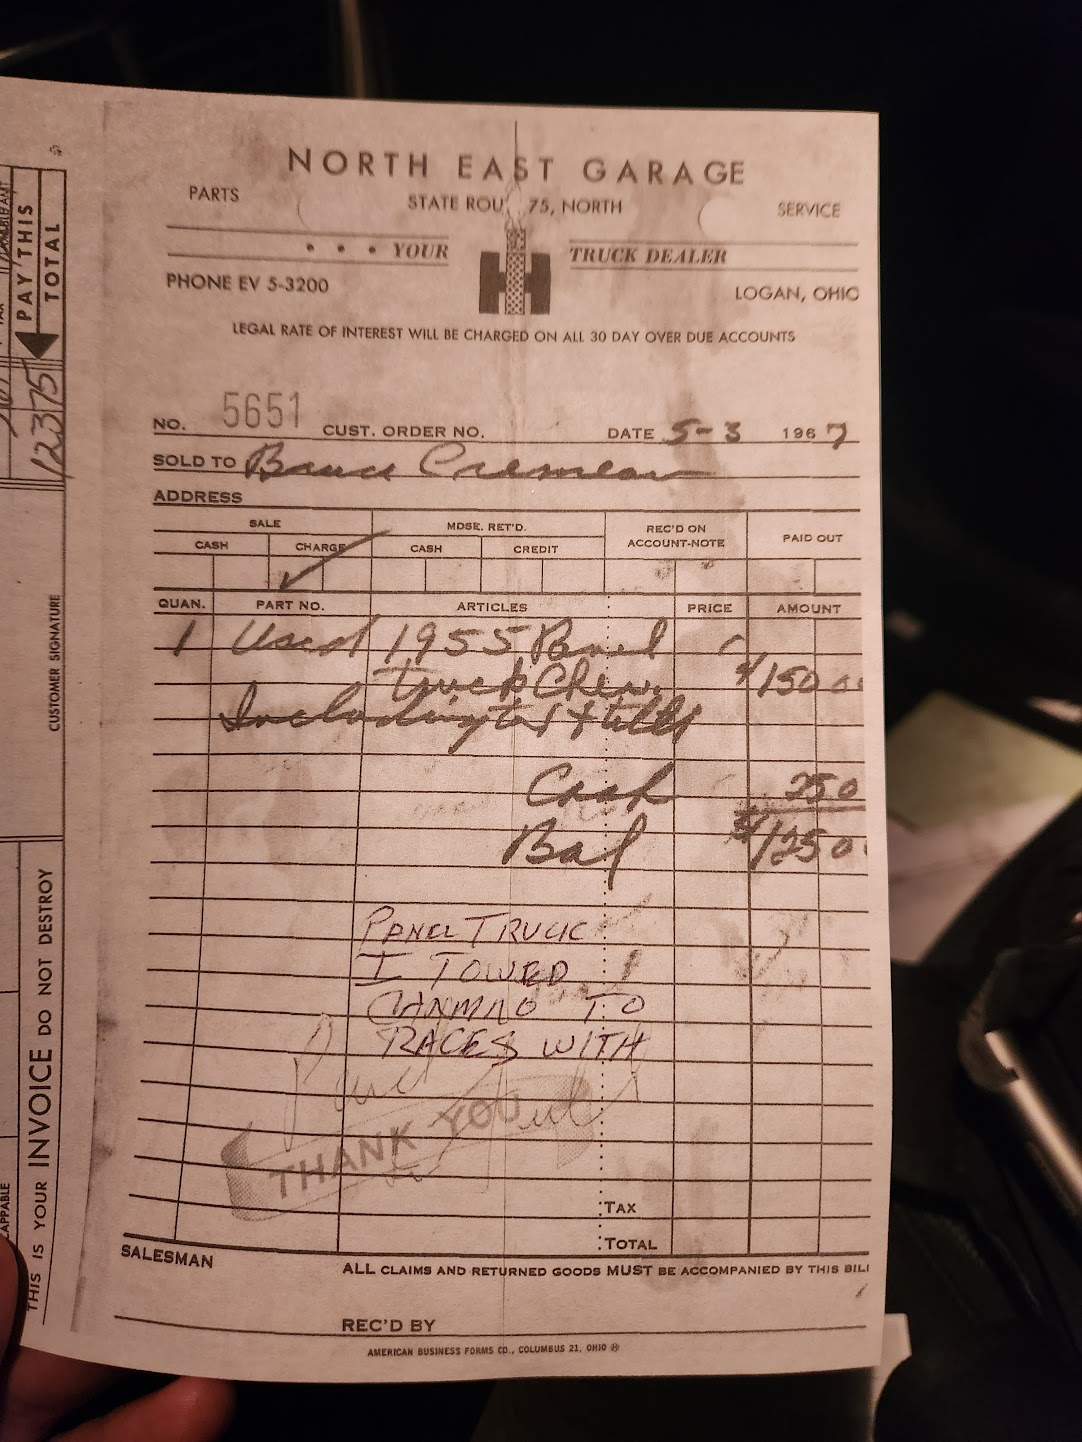 NORTH EAST GARAGE
PARTS
STATE ROU 75, NORTH
SERVICE
• • • YOUR
TRUCK DEALER
PHONE EV 5-3200
LOGAN, OHIO
LEGAL RATE OF INTEREST WILL BE CHARGED ON ALL 30 DAY OVER DUE ACCOUNTS
NO. 5651 CUST. ORDER NO. DATE 5-3 1967
SOLD TO
ADDRESS
SALE MDSE. RET'D. REC'D ON ACCOUNT-NOTE PAID OUT
CASH CHARGE CASH CREDIT
QUAN. PART NO. ARTICLES PRICE AMOUNT
1 Used 1955 Panel
truck Chev. $150 00
Including tax & title
Cash 25 0
Bal $125 0
PANEL TRUCK
I TOWED
TO
RACES WITH
THANK YOU
TAX
TOTAL
SALESMAN
ALL CLAIMS AND RETURNED GOODS MUST BE ACCOMPANIED BY THIS BILL
REC'D BY
AMERICAN BUSINESS FORMS CO., COLUMBUS 21, OHIO
PAY THIS
TOTAL
123 75
CUSTOMER SIGNATURE
THIS IS YOUR INVOICE DO NOT DESTROY